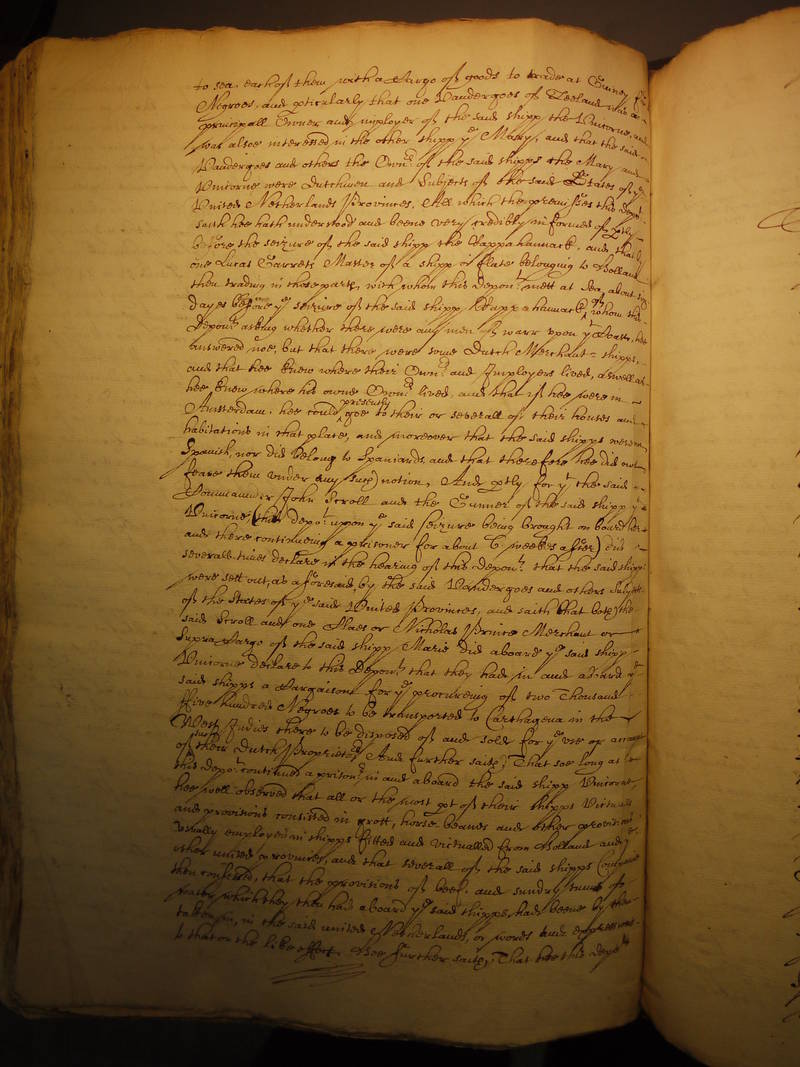 to sea, each of them with a Cargo of goods to trade at Guiney for
Negroes, and pticularly that one Vandergoes of Zeeland was a
principall Owner and imployer of the said shipp the Unicorne, and
was alsoe interessed in the other shipp ye Mary, and that the said
Vandergoes and others the Ownrs of the said shipps the Mary and
Unicorne were Dutchmen and Subjects of the said States of ye
United Netherlands Provinces, All which the premisses this depot
saith hee hath understood and beene very credibly informed of both
before the seizure of the said shipp the Rappahannack, and that by
one Lucas Garrets Master of a shipp or flute belonging to Holland
then trading in those parts, with whom this deponrt mett at Sea about
dayes before ye seizure of the said shipp Rappahannack, whom this
Deponrt asking whether there were any men of warr upon ye Coast, hee
answered noe, but that there were some Dutch Merchant-shipps,
and that hee knew where their Ownrs and Imployers lived, aswell as
hee knew where his owne Ownrs lived, and that if hee were in
Amsterdam, hee could presently goe to their or severall of their houses and
habitations in that place, and moreover that the said shipps were no
Spanish, nor did belong to Spaniards, and that therefore hee did not
feare them under any such notion, And ptly for yt the said
Commander John Scroll and the Gunner of the said shipp ye
Unicorne, (this depot upon ye said seizure being brought on board her
and there continueing a prisoner for about 6 weekes after) did
severall times declare in the hearing of this Deponrt that the said shipps
were sett out, as aforesaid, by the said Vandergoes and others Subjects
of the States of ye said United Provinces, and saith that both the
said Scroll and one Claes or Nicholas Prince Merchant or
Supra Cargo of the said shipp Marie did aboard ye said shipp
Unicorne declare to this Deponrt that they had in and aboard ye
said shipps a Cargaison for ye procureing of two Thousand
ffive hundred Negroes to be transported to Carthagena in the
West Indies there to be disposed of and sold for ye use or accompt
of their said Dutch Proprietors, And further saith, That soe long as
this depot continued a prisonr in and aboard the said shipp Unicorne,
hee well observed that all or the most pt of their shipps Victualls
and provisions consisted in grott, horse beanes and other provisions
usually employed in shipps fitted and victualled from Holland and ye
other united provinces, and that severall of the said shipps Company
then confessed, that the provisions of beef, and sundry tunns of
water which they then had aboard ye said shipps, had beene by them
taken in, in the said united Netherlands, or words and expressions
to that or the like effect. Hee further saith, That hee this depot